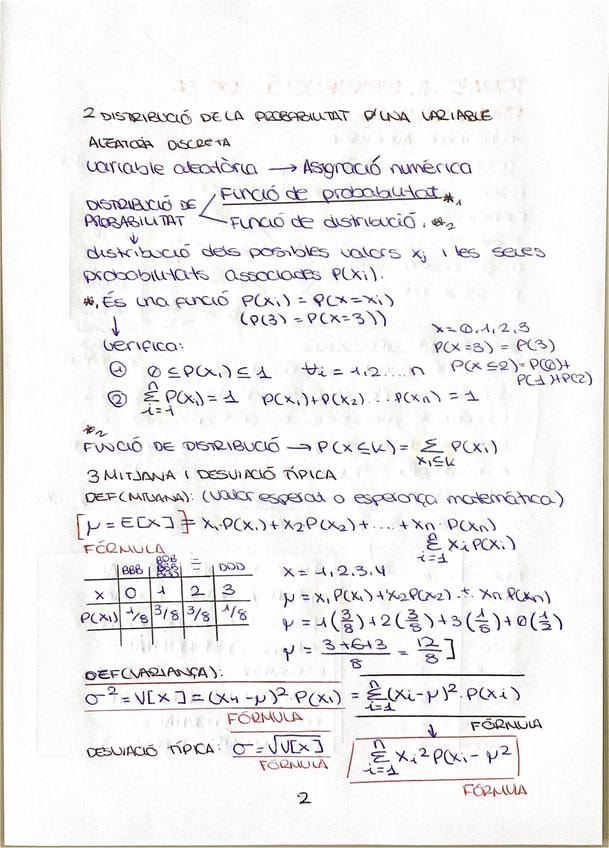 2 DISTRIBUCIÓ DE LA PROBABILITAT D'UNA VARIABLE
ALEATORIA DISCRETA
variable aleatòria → Asignació numérica
DISTRIBUCIÓ DE PROBABILITAT
Funció de probabilitat *1
Funció de distribució. *2
↓
distribució dels possibles valors xj i les seves
probabilitats associades P(xi).
*1 És una funció P(xi) = P(x=xi)
(P(3) = P(X=3))
↓
verifica:
x=0,1,2,3
P(X=3) = P(3)
P(X≤2)=P(0)+
P(1)+P(2)
① 0 ≤ P(xi) ≤ 1 ∀i = 1,2...n
② n Σ i=1 P(xi) = 1 P(x1)+P(x2)...P(xn) = 1
*2
FUNCIÓ DE DISTRIBUCIÓ → P(X≤K) = Σ xi≤K P(xi)
3 MITJANA I DESVIACIÓ TÍPICA
DEF(MITJANA): (valor esperat o esperança matemàtica)
[μ = E[X] = x1·P(x1)+x2P(x2)+....+xn·P(xn)
n Σ i=1 xi P(xi)
FÓRMULA
BBB DDD
X 0 1 2 3
P(xi) 1/8 3/8 3/8 1/8
x = 1,2,3,4
μ = x1 P(x1)+x2P(x2)..+. xn P(xn)
μ = 1(3/8)+2(3/8)+3(1/8)+0(1/2)
μ = 3+6+3/8 = 12/8]
DEF(VARIANÇA):
σ² = V[X] = (x1-μ)²·P(xi) = n Σ i=1 (xi-μ)²·P(xi)
FÓRMULA
FÓRMULA
DESVIACIÓ TÍPICA: σ=√V[X]
FÓRMULA
↓
n Σ i=1 xi² P(xi - μ²
FÓRMULA
2